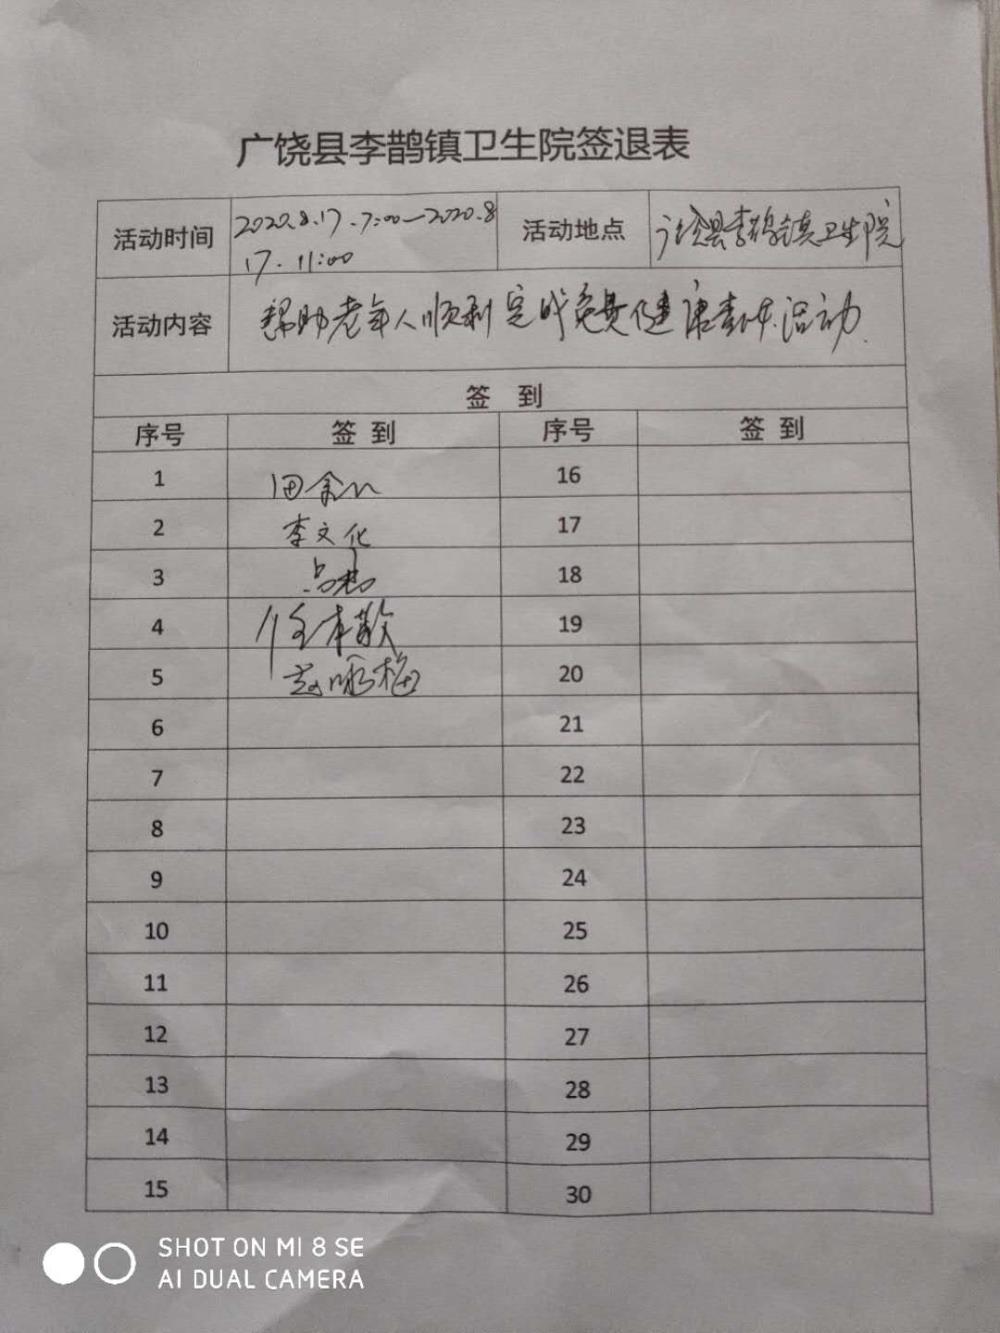 广饶县李鹊镇卫生院签退表
活动时间 2020.8.17.7:00—2020.8 活动地点 广饶县李鹊镇卫生院
17.11:00
活动内容 帮助老年人顺利完成免费健康查体活动.
签 到
序号 签到 序号 签到
1 16
2 李文化 17
3 18
4 19
5 赵咏梅 20
6 21
7 22
8 23
9 24
10 25
11 26
12 27
13 28
14 29
15 30
SHOT ON MI 8 SE
AI DUAL CAMERA